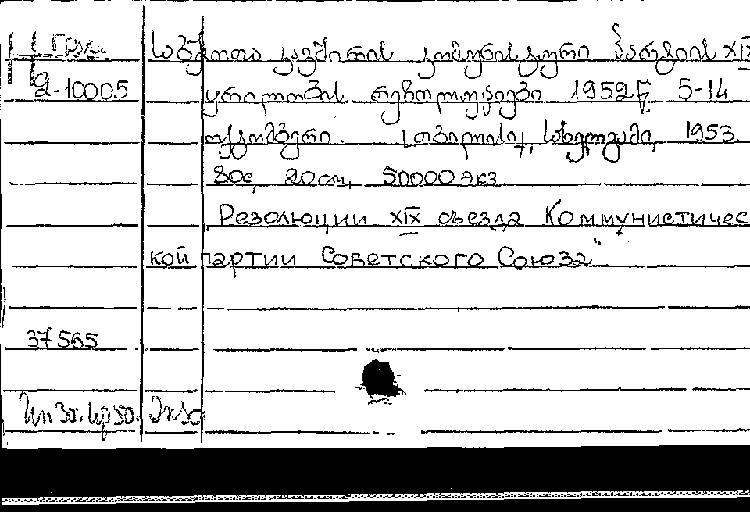 Груз.
2-10005
საბჭოთა კავშირის კომუნისტური პარტიის XIX
ყრილობის რეზოლუციები 1952 წ. 5-14
ოქტომბერი. თბილისი, სახელგამი, 1953.
30с, 20см, 50000 экз
"Резолюции XIX съезда Коммунистичес
кой партии Советского Союза"
37565